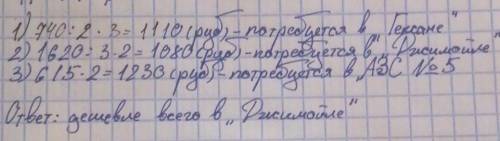 1) 740 : 2 · 3 = 1110 (руб) - потребуется в „Гексане“
2) 1620 : 3 · 2 = 1080 (руб) - потребуется в „Джимойле“
3) 615 · 2 = 1230 (руб) - потребуется в „АЗС №5
Ответ: дешевле всего в „Джимойле“